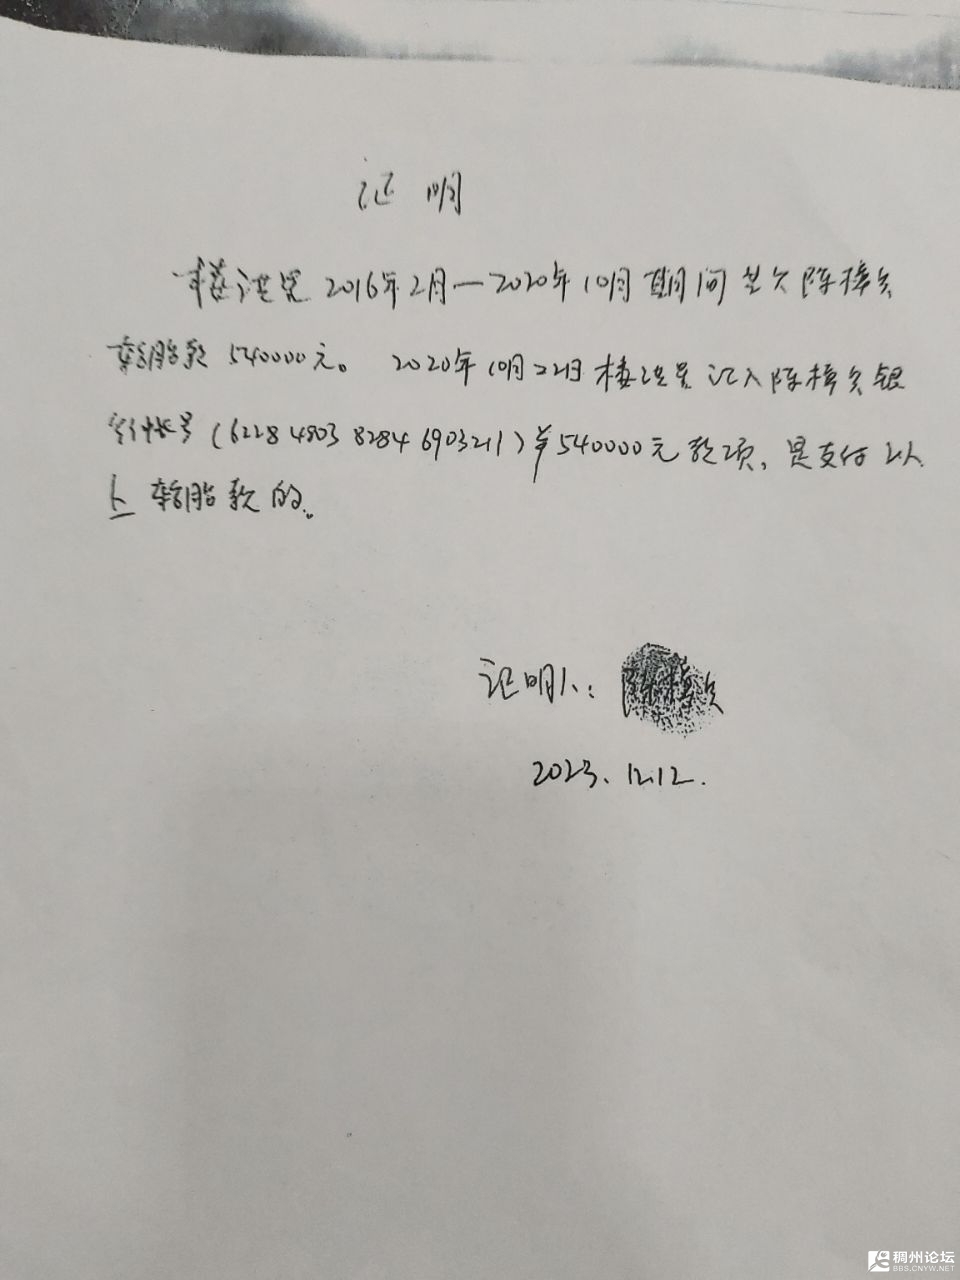 证明
楼洪 2016年2月—2020年10月期间共欠陈樟
轮胎款540000元。2020年10月22日楼洪 汇入陈樟 银
行帐号(6228 4803 8284 6903211)￥540000元款项,是支付以
上轮胎款的。
证明人:陈樟
2023.12.12.
稠州论坛
BBS.CNYW.NET